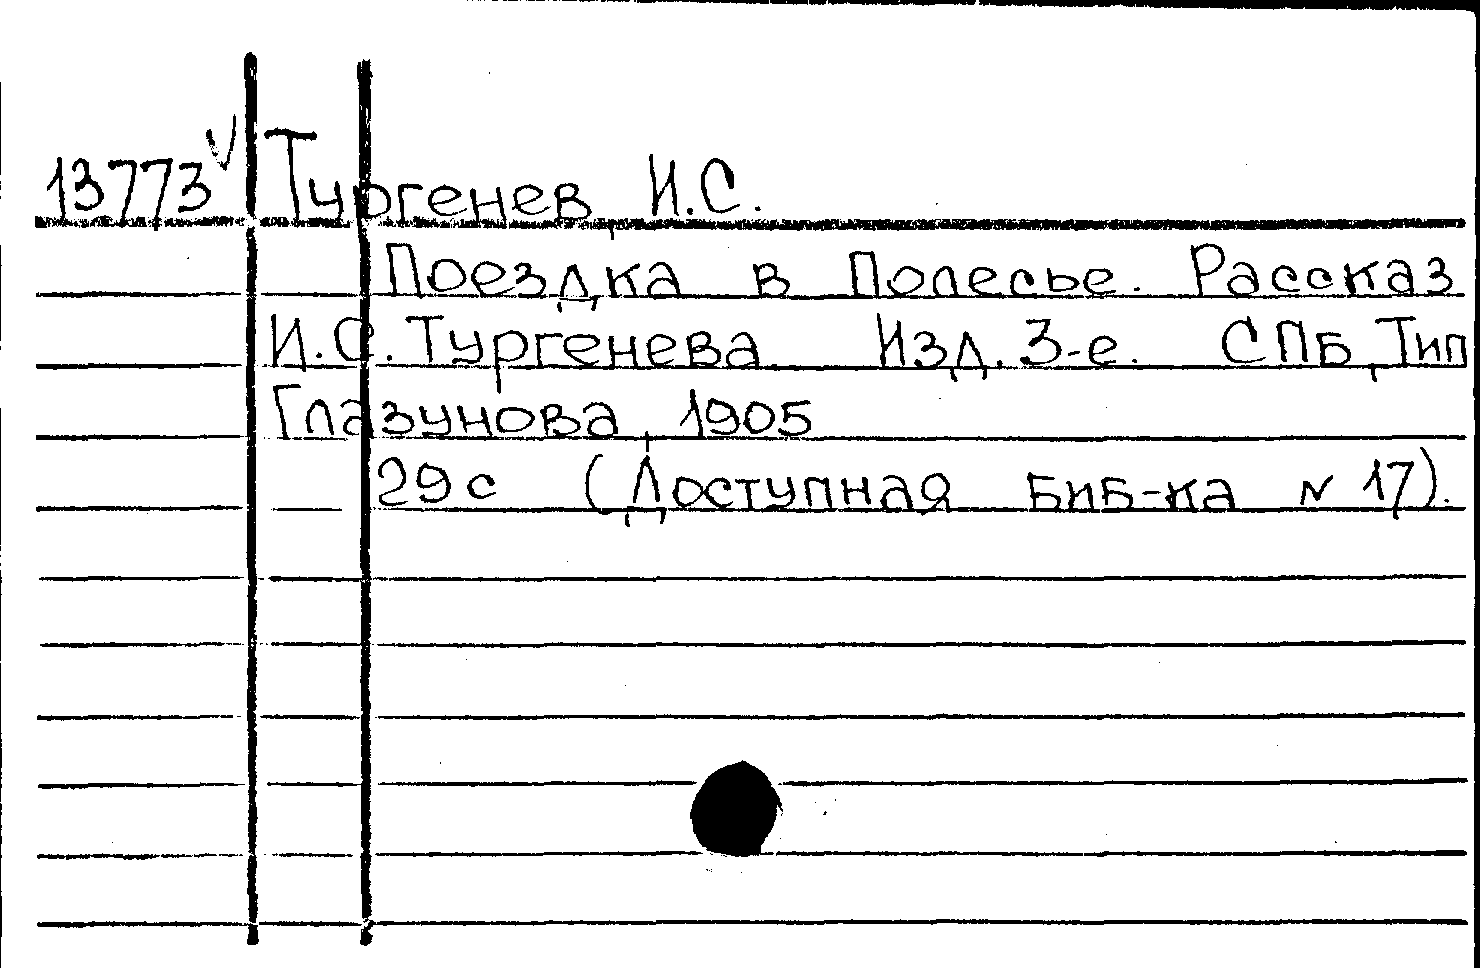 13773 V Тургенев, И.С.
Поездка в Полесье. Рассказ
И.С. Тургенева Изд. 3-е. СПБ, Тип
Глазунова, 1905
29с (Доступная биб-ка № 17).